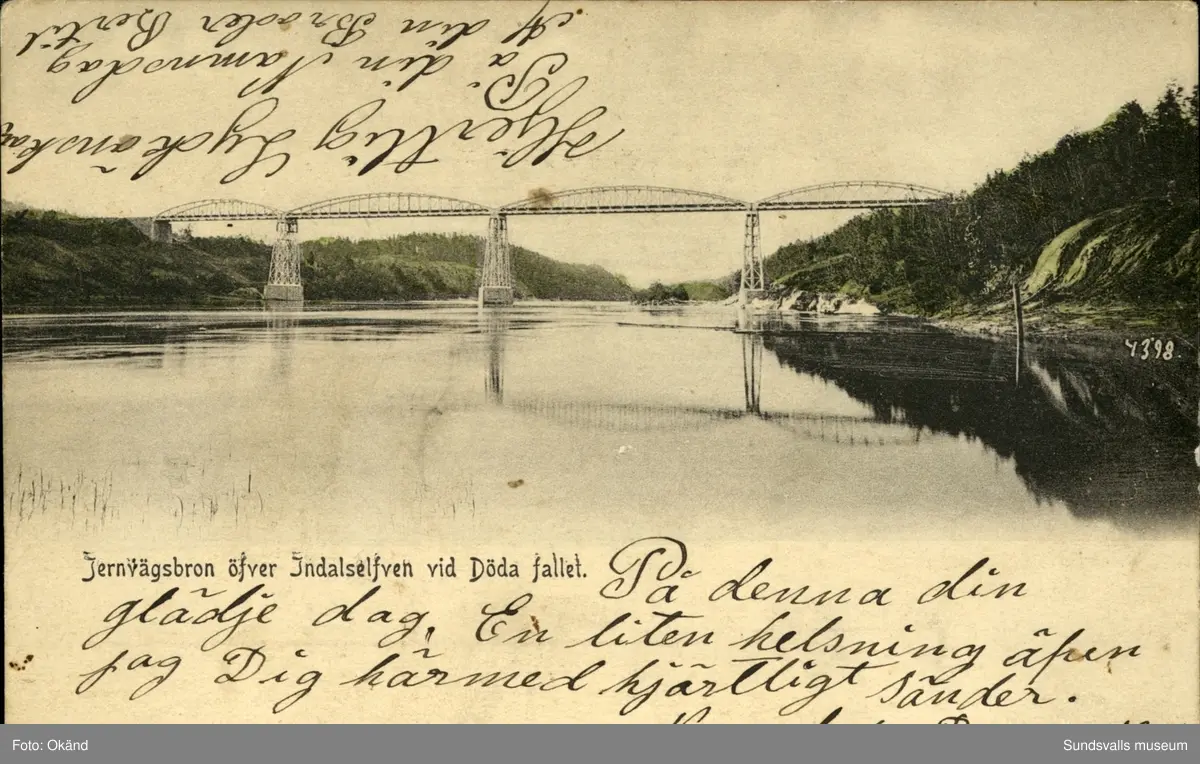 Hjertlig Lyckönskan
På din Namnsdag
Af din Broder Bertil
4398.
Jernvägsbron öfver Indalselfven vid Döda fallet.
På denna din
glädje dag, En liten helsning äfven
jag Dig härmed hjärtligt sänder.
Foto: Okänd
Sundsvalls museum